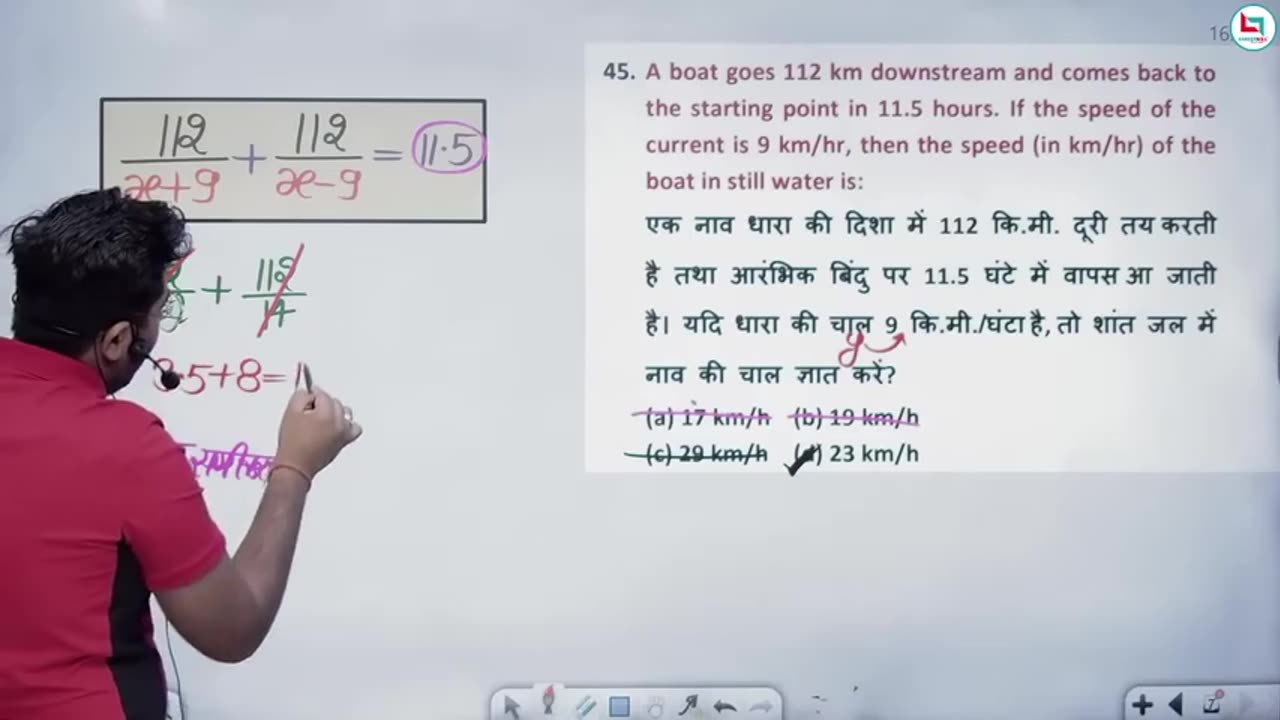 16
112/x+9 + 112/x-9 = 11.5
+ 112/14
3.5+8=1
45. A boat goes 112 km downstream and comes back to
the starting point in 11.5 hours. If the speed of the
current is 9 km/hr, then the speed (in km/hr) of the
boat in still water is:
एक नाव धारा की दिशा में 112 कि.मी. दूरी तय करती
है तथा आरंभिक बिंदु पर 11.5 घंटे में वापस आ जाती
है। यदि धारा की चाल 9 कि.मी./घंटा है, तो शांत जल में
y
नाव की चाल ज्ञात करें?
(a) 17 km/h (b) 19 km/h
(c) 29 km/h (d) 23 km/h